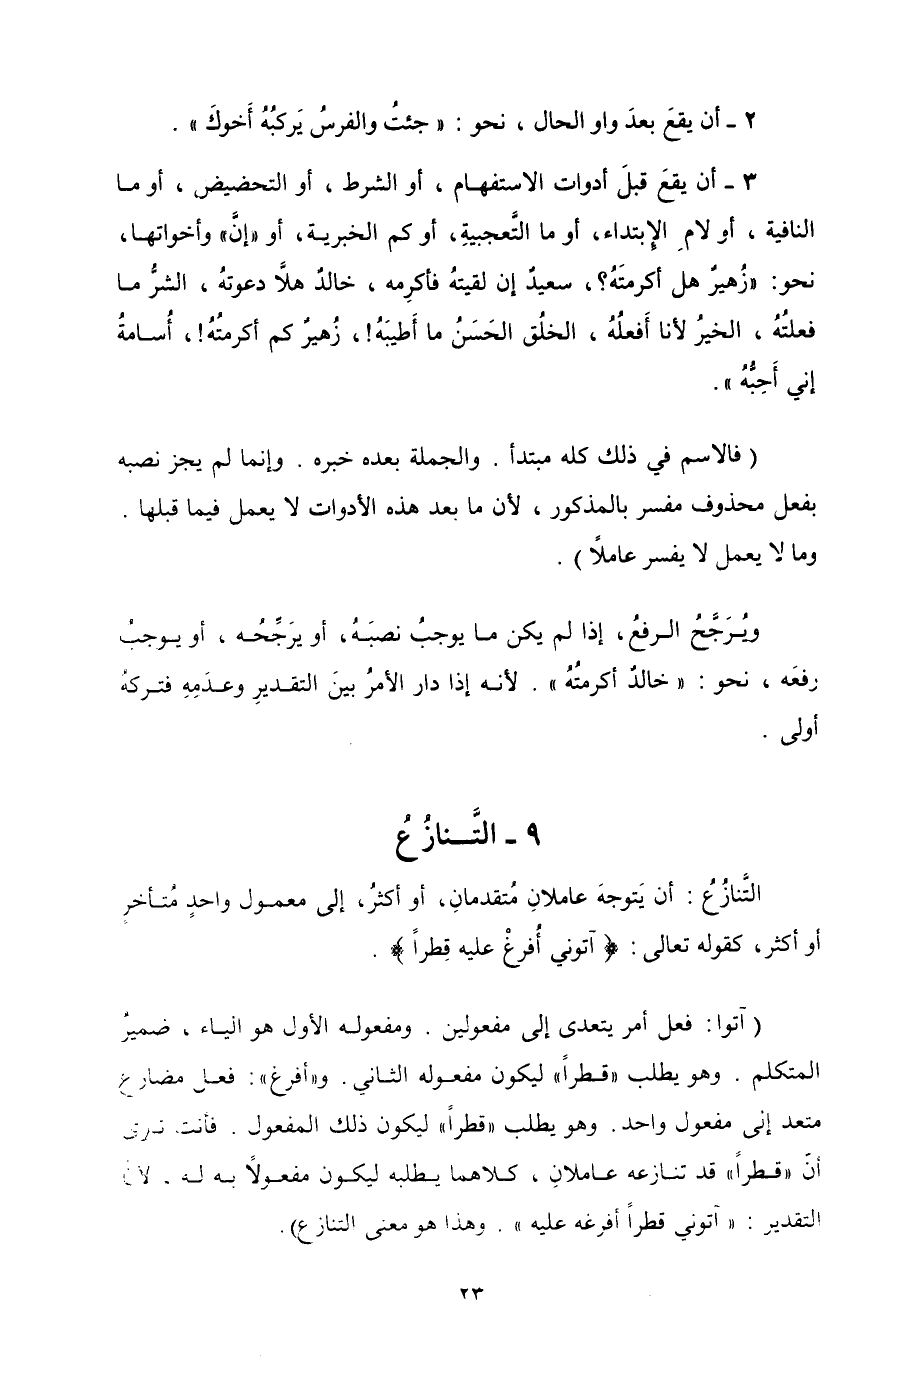 ٢ ـ أن يقعَ بعدَ واو الحال ، نحو : « جئتُ والفرسُ يَركبُهُ أَخوكَ » .
٣ ـ أن يقعَ قبلَ أدوات الاستفهـام ، أو الشرط ، أو التحضيض ، أو مـا
النافية ، أو لام الإبتداء، أو ما التَّعجبيةِ، أو كم الخبريـة، أو «إنَّ» وأخواتهـا،
نحو: «زُهيرٌ هل أكرمتَهُ؟، سعيدٌ إن لقيتهُ فأكرِمه ، خالدٌ هلاَّ دعوتهُ ، الشرُّ مـا
فعلتُهُ ، الخيرُ لأنا أَفعلُهُ ، الخلُق الحَسَنُ ما أَطيبَهُ!، زُهيرٌ كم أكرمتُهُ!، أُسـامةُ
إني أَحِبُّهُ ».
( فالاسم في ذلك كله مبتدأ . والجملة بعده خبره . وإنما لم يجز نصبه
بفعل محذوف مفسر بالمذكور ، لأن ما بعد هذه الأدوات لا يعمل فيما قبلها .
وما لا يعمل لا يفسر عاملاً ) .
ويُـرَجَّحُ الـرفعُ، إذا لم يكن مـا يوجبُ نصبَـهُ، أو يرَجِّحُـه ، أو يـوجبُ
رفعَه ، نحو : « خالدٌ أكرمتُهُ » . لأنـه إذا دار الأمرُ بينَ التقـديرِ وعـدَمِهِ فتـركهُ
أولى .
٩ ـ التَّـــنازُعُ
التَّنازُعُ : أن يَتوجهَ عاملانِ مُتقدمانِ، أو أكثرُ، إلى معمـول واحدٍ مُتـأخرٍ
أو أكثر، كقوله تعالى : ﴿ آتوني أُفرغْ عليه قِطراً ﴾ .
( آتوا: فعل أمر يتعدى إلى مفعولين . ومفعولـه الأول هو اليـاء ، ضميرُ
المتكلم . وهو يطلب «قـطراً» ليكون مفعوله الثـاني. و«أفرغ»: فعـل مضارع
متعد إلى مفعول واحد. وهو يطلب «قطراً» ليكون ذلك المفعول . فأنت ترى
أنّ «قـطراً» قد تنـازعه عـاملانِ ، كـلاهمـا يـطلبه ليكـون مفعـولاً بـه لـه . لأنَّ
التقدير : « آتوني قطراً أفرغه عليه » . وهذا هو معنى التنازع).
٢٣